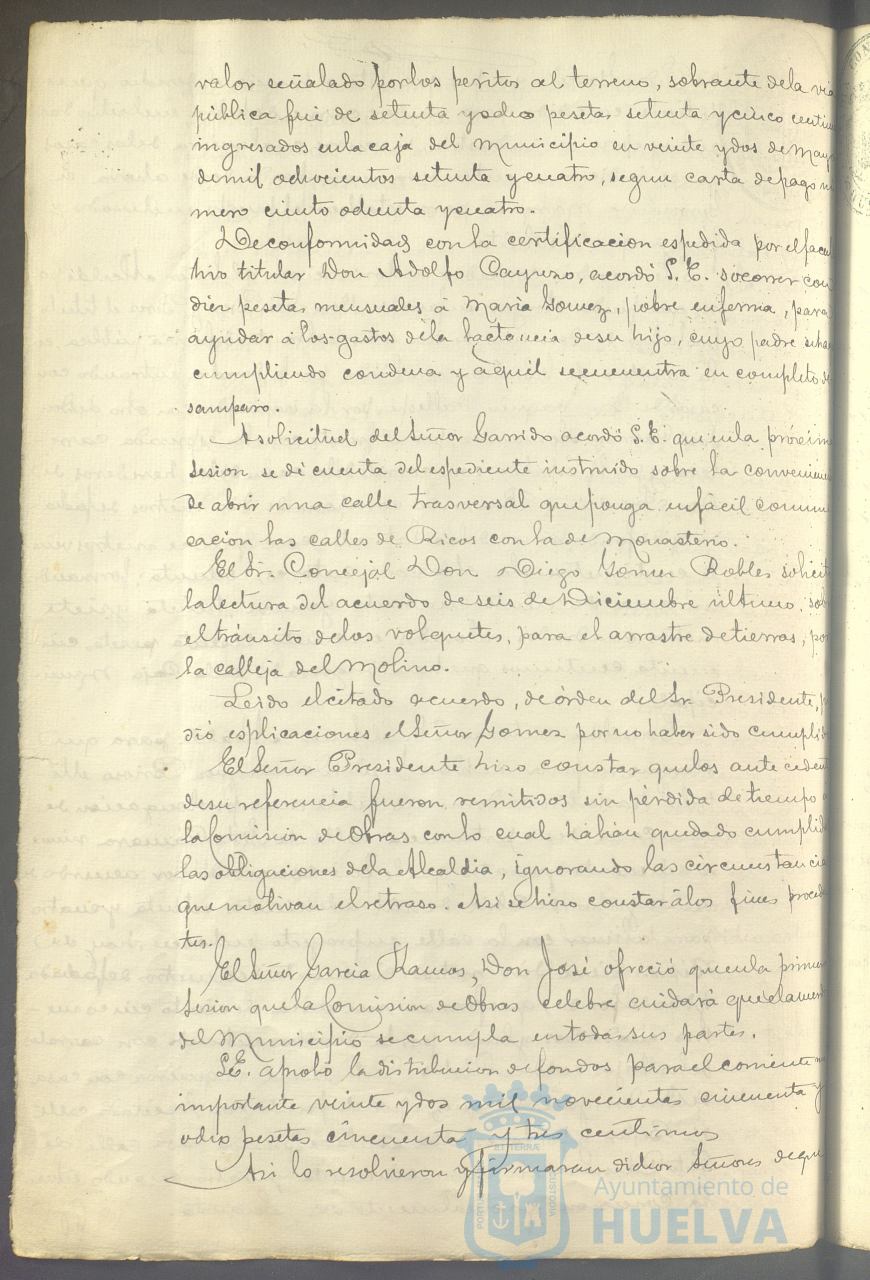 valor señalado por los peritos al terreno, sobrante de la via
pública fué de setenta y ocho pesetas setenta y cinco centim
ingresados en la caja del Municipio en veinte y dos de May
de mil ochocientos setenta y cuatro, segun carta de pago nú
mero ciento ochenta y cuatro.
De conformidad con la certificacion espedida por el facul
tivo titular Don Adolfo Cayuzo, acordó S. E. socorrer con
diez pesetas mensuales á Maria Gomez, pobre enferma, para
ayudar á los gastos de la lactancia de su hijo, cuyo padre se ha
cumpliendo condena y aquel se encuentra en completo de
samparo.
A solicitud del Señor Garrido acordó S. E. que en la próxim
sesion se dé cuenta del espediente instruido sobre la convenien
de abrir una calle trasversal que ponga en fácil comuni
cacion las calles de Ricos con la de Monasterio.
El Sr. Concejal Don Diego Gomez Robles solicit
la lectura del acuerdo de seis de Diciembre último, sob
el tránsito de los volquetes, para el arrastre de tierras, por
la calleja del Molino.
Leido el citado acuerdo, de órden del Sr. Presidente, p
dió esplicaciones el Señor Gomez por no haber sido cumplid
El Señor Presidente hizo constar que los anteceden
de su referencia fueron remitidos sin pérdida de tiempo a
la Comision de Obras con lo cual habian quedado cumplid
las obligaciones de la Alcaldia, ignorando las circunstancia
que motivan el retraso. Asi se hizo constar á los fines proced
tes.
El Señor Garcia Ramos, Don José ofreció que en la primer
sesion que la Comision de Obras celebre cuidará que el acuer
del Municipio se cumpla en todas sus partes.
S. E. aprobó la distribucion de fondos para el corriente m
importante veinte y dos mil novecientas cincuenta y
ocho pesetas cincuenta y tres centimos
Asi lo resolvieron y firmaran dichos Señores de que
Ayuntamiento de
HUELVA